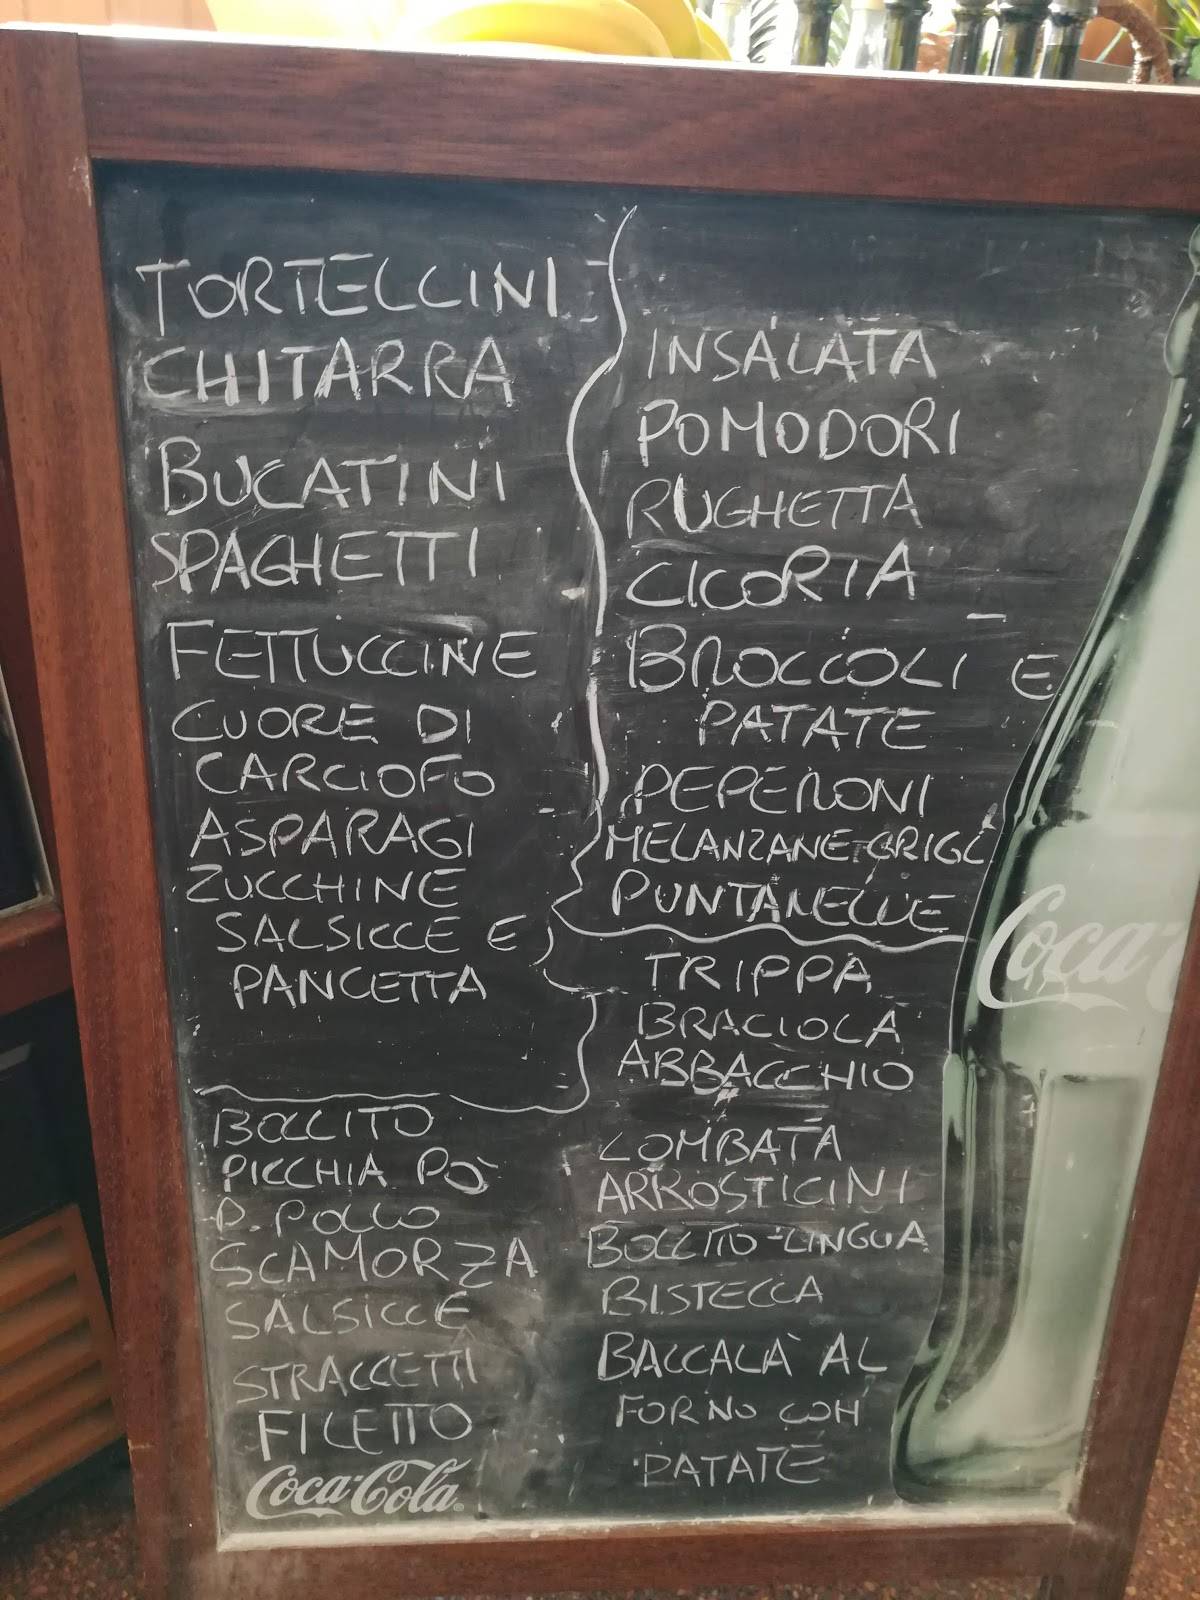 TORTELLINI
CHITARRA
BUCATINI
SPAGHETTI
FETTUCCINE
CUORE DI
CARCIOFO
ASPARAGI
ZUCCHINE
SALSICCE E
PANCETTA
INSALATA
POMODORI
RUGHETTA
CICORIA
BROCCOLI E
PATATE
PEPERONI
MELANZANE GRIGL
PUNTARELLE
BOLLITO
PICCHIA PÒ
P. POLLO
SCAMORZA
SALSICCE
STRACCETTI
FILETTO
Coca-Cola
TRIPPA
BRACIOLA
ABBACCHIO
LOMBATA
ARROSTICINI
BOLLITO-LINGUA
BISTECCA
BACCALÀ AL
FORNO CON
PATATE
Coca-C